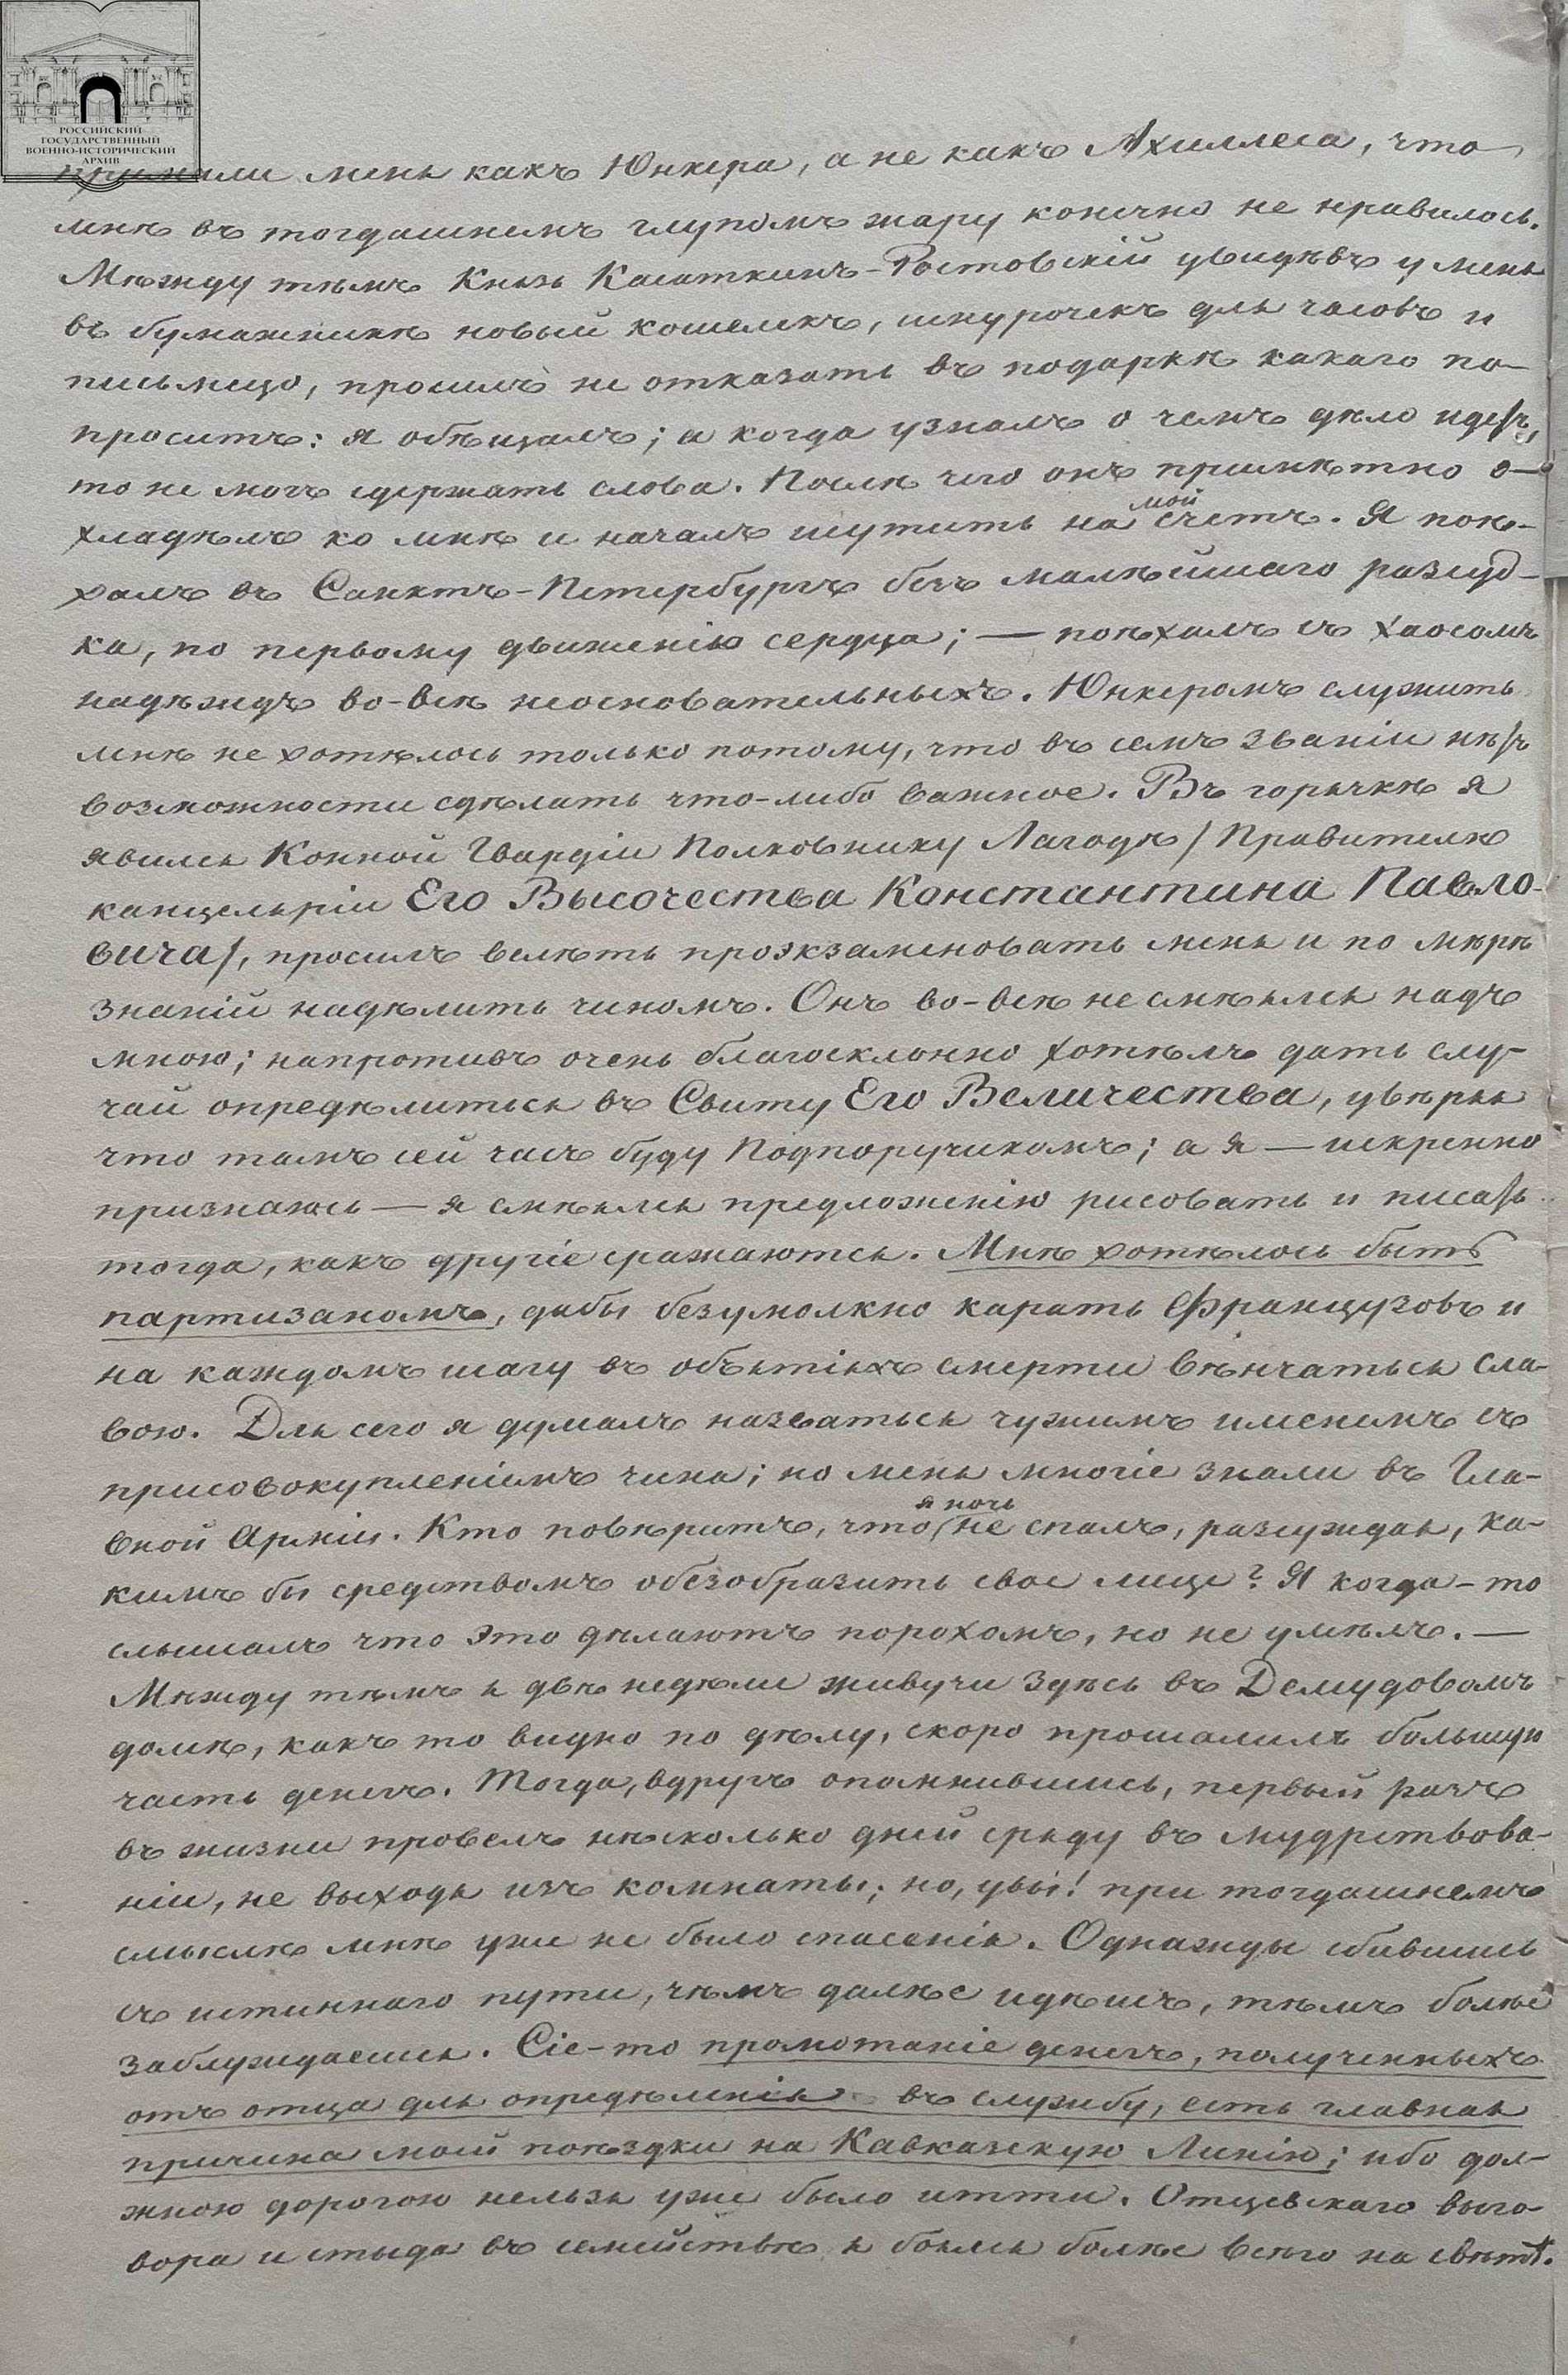 РОССИЙСКИЙ
ГОСУДАРСТВЕННЫЙ
ВОЕННО-ИСТОРИЧЕСКИЙ
АРХИВ
приняли меня какъ Юнкера, а не какъ Ахиллеса, что
мнѣ въ тогдашнемъ глупомъ жару конечно не нравилось.
Мѣжду тѣмъ Князь Касаткинъ-Ростовскій увидѣвъ у меня
въ бумажникѣ новый кошелекъ, шнурочекъ для часовъ и
письмецо, просилъ не отказать въ подаркѣ какаго по-
проситъ: я обѣщалъ; а когда узналъ о чемъ дѣло идетъ,
то не могъ сдержать слова. Послѣ чего онъ примѣтно о-
хладѣлъ ко мнѣ и началъ шутить на мой счетъ. Я поѣ-
халъ въ Санктъ-Петербургъ безъ малѣйшаго разсуд-
ка, по первому движенію сердца; — поѣхалъ съ хаосомъ
надѣждъ во-всѣ неосновательныхъ. Юнкеромъ служить
мнѣ не хотѣлось только потому, что въ семъ званіи нѣтъ
возможности сдѣлать что-либо важное. Въ горячкѣ я
явился Конной Гвардіи Полковнику Лагодѣ /Правителю
канцеляріи Его Высочества Константина Павло-
вича/, просилъ велѣть проэкзаменовать меня и по мѣрѣ
знаній надѣлить чиномъ. Онъ во-всѣ не смѣялся надъ
мною; напротивъ очень благосклонно хотѣлъ дать слу-
чай опредѣлиться въ Свиту Его Величества, увѣряя
что тамъ сей часъ буду Подпоручикомъ; а я — искренно
признаюсь — я смѣялся предложенію рисовать и писать
тогда, какъ другіе сражаются. Мнѣ хотѣлось быть
партизаномъ, дабы безумолкно карать Французовъ и
на каждомъ шагу въ объятіяхъ смерти вѣнчаться сла-
вою. Для сего я думалъ назваться чужимъ именемъ съ
присовокупленіемъ чина; но меня многіе знали въ Гла-
вной Арміи. Кто повѣритъ, что я ночь не спалъ, разсуждая, ка-
кимъ бы средствомъ обезобразить свое лице? Я когда-то
слышалъ что это дѣлаютъ порохомъ, но не умѣлъ. —
Мѣжду тѣмъ я двѣ недѣли живучи здѣсь въ Демудовомъ
домѣ, какъ то видно по дѣлу, скоро прошалилъ большую
часть денегъ. Тогда, вдругъ опомнившись, первый разъ
въ жизни провелъ нѣсколько дней сряду въ мудрствова-
ніи, не выходя изъ комнаты; но, увы! при тогдашнемъ
смыслѣ мнѣ уже не было спасенія. Однажды сбившись
съ истиннаго пути, чѣмъ далѣе идѣшь, тѣмъ болѣе
заблуждаешся. Сіе-то промотаніе денегъ, полученныхъ
отъ отца для опредѣленія въ службу, есть главная
причина моей поѣздки на Кавказскую Линію; ибо дол-
жною дорогою нельзя уже было итти. Отцевскаго выго-
вора и стыда въ семействѣ я боялся болѣе всего на свѣтѣ.